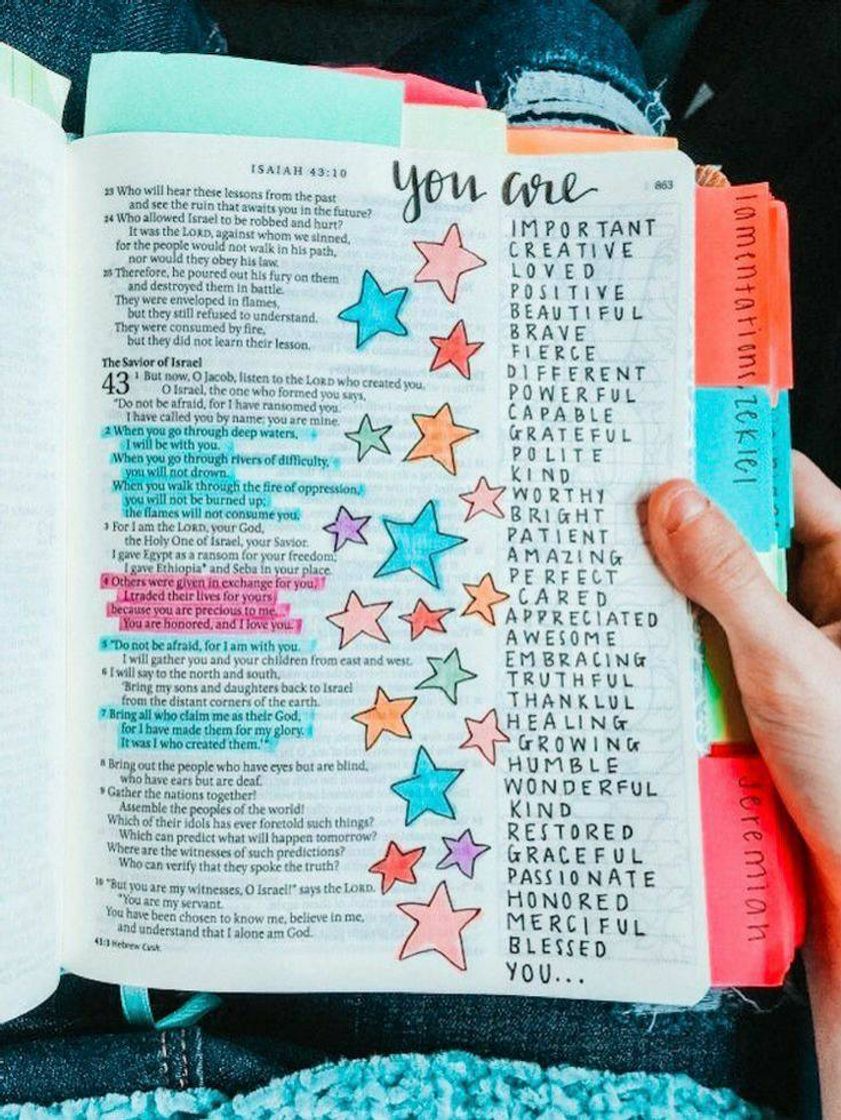 ISAIAH 43:10
863
23 Who will hear these lessons from the past
and see the ruin that awaits you in the future?
24 Who allowed Israel to be robbed and hurt?
It was the LORD, against whom we sinned,
for the people would not walk in his path,
nor would they obey his law.
25 Therefore, he poured out his fury on them
and destroyed them in battle.
They were enveloped in flames,
but they still refused to understand.
They were consumed by fire,
but they did not learn their lesson.
The Savior of Israel
43 1 But now, O Jacob, listen to the LORD who created you.
O Israel, the one who formed you says,
"Do not be afraid, for I have ransomed you.
I have called you by name; you are mine.
2 When you go through deep waters,
I will be with you.
When you go through rivers of difficulty,
you will not drown.
When you walk through the fire of oppression,
you will not be burned up;
the flames will not consume you.
3 For I am the LORD, your God,
the Holy One of Israel, your Savior.
I gave Egypt as a ransom for your freedom;
I gave Ethiopia* and Seba in your place.
4 Others were given in exchange for you.
I traded their lives for yours
because you are precious to me.
You are honored, and I love you.
5 "Do not be afraid, for I am with you.
I will gather you and your children from east and west.
6 I will say to the north and south,
'Bring my sons and daughters back to Israel
from the distant corners of the earth.
7 Bring all who claim me as their God,
for I have made them for my glory.
It was I who created them.'"
8 Bring out the people who have eyes but are blind,
who have ears but are deaf.
9 Gather the nations together!
Assemble the peoples of the world!
Which of their idols has ever foretold such things?
Which can predict what will happen tomorrow?
Where are the witnesses of such predictions?
Who can verify that they spoke the truth?
10 "But you are my witnesses, O Israel!" says the LORD.
"You are my servant.
You have been chosen to know me, believe in me,
and understand that I alone am God.
43:3 Hebrew Cush.
you are
IMPORTANT
CREATIVE
LOVED
POSITIVE
BEAUTIFUL
BRAVE
FIERCE
DIFFERENT
POWERFUL
CAPABLE
GRATEFUL
POLITE
KIND
WORTHY
BRIGHT
PATIENT
AMAZING
PERFECT
CARED
APPRECIATED
AWESOME
EMBRACING
TRUTHFUL
THANKLUL
HEALING
GROWING
HUMBLE
WONDERFUL
KIND
RESTORED
GRACEFUL
PASSIONATE
HONORED
MERCIFUL
BLESSED
YOU...
lamentations
ezekiel
Jeremiah